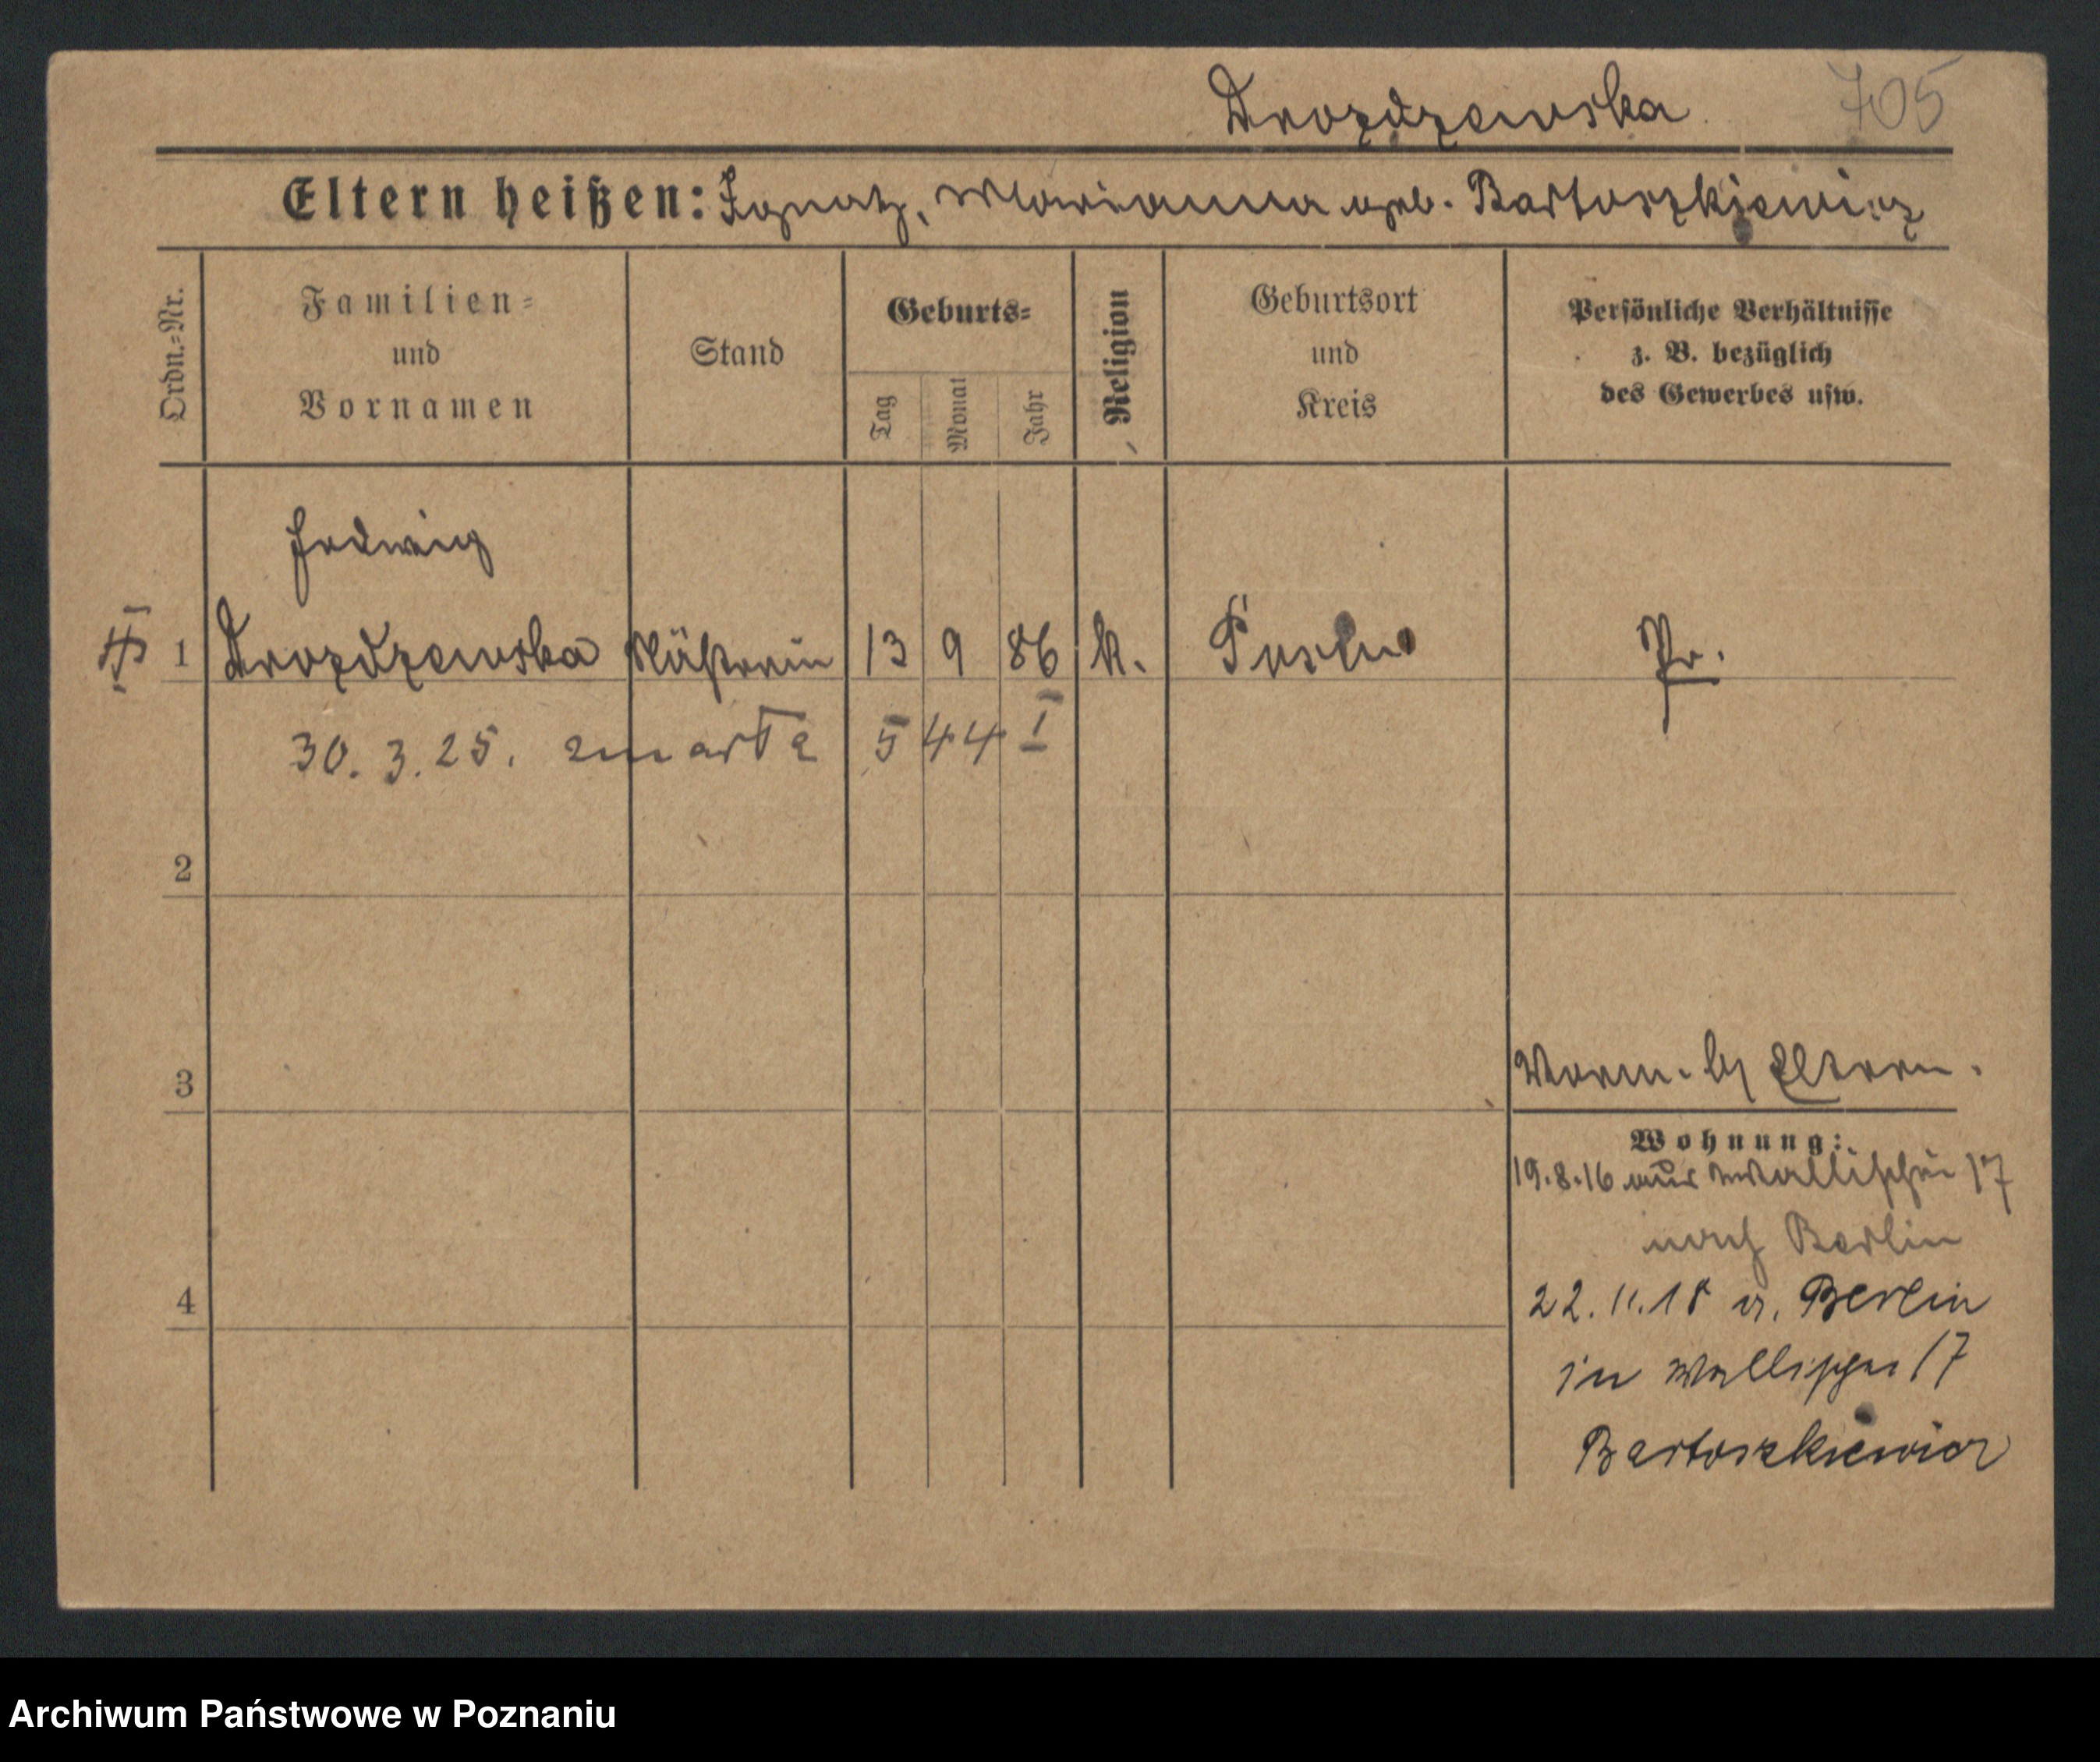 Drozdzewska 705
Eltern heißen: Ignatz, Marianna geb. Bartoszkiewicz
Ordn.-Nr.
Familien-
und
Vornamen
Stand
Geburts-
Tag
Monat
Jahr
Religion
Geburtsort
und
Kreis
Persönliche Verhältnisse
z. B. bezüglich
des Gewerbes usw.
Hedwig
1 Drozdzewska Näherin 13 9 86 k. Posen Pr.
30. 3. 25. zmarła 544 I
2
3
Worm. b/ Eltern.
Wohnung:
19.8.16 aus Wallischei 17
nach Berlin
4
22.11.18 v. Berlin
in Wallischei 17
Bartoszkiewicz
Archiwum Państwowe w Poznaniu